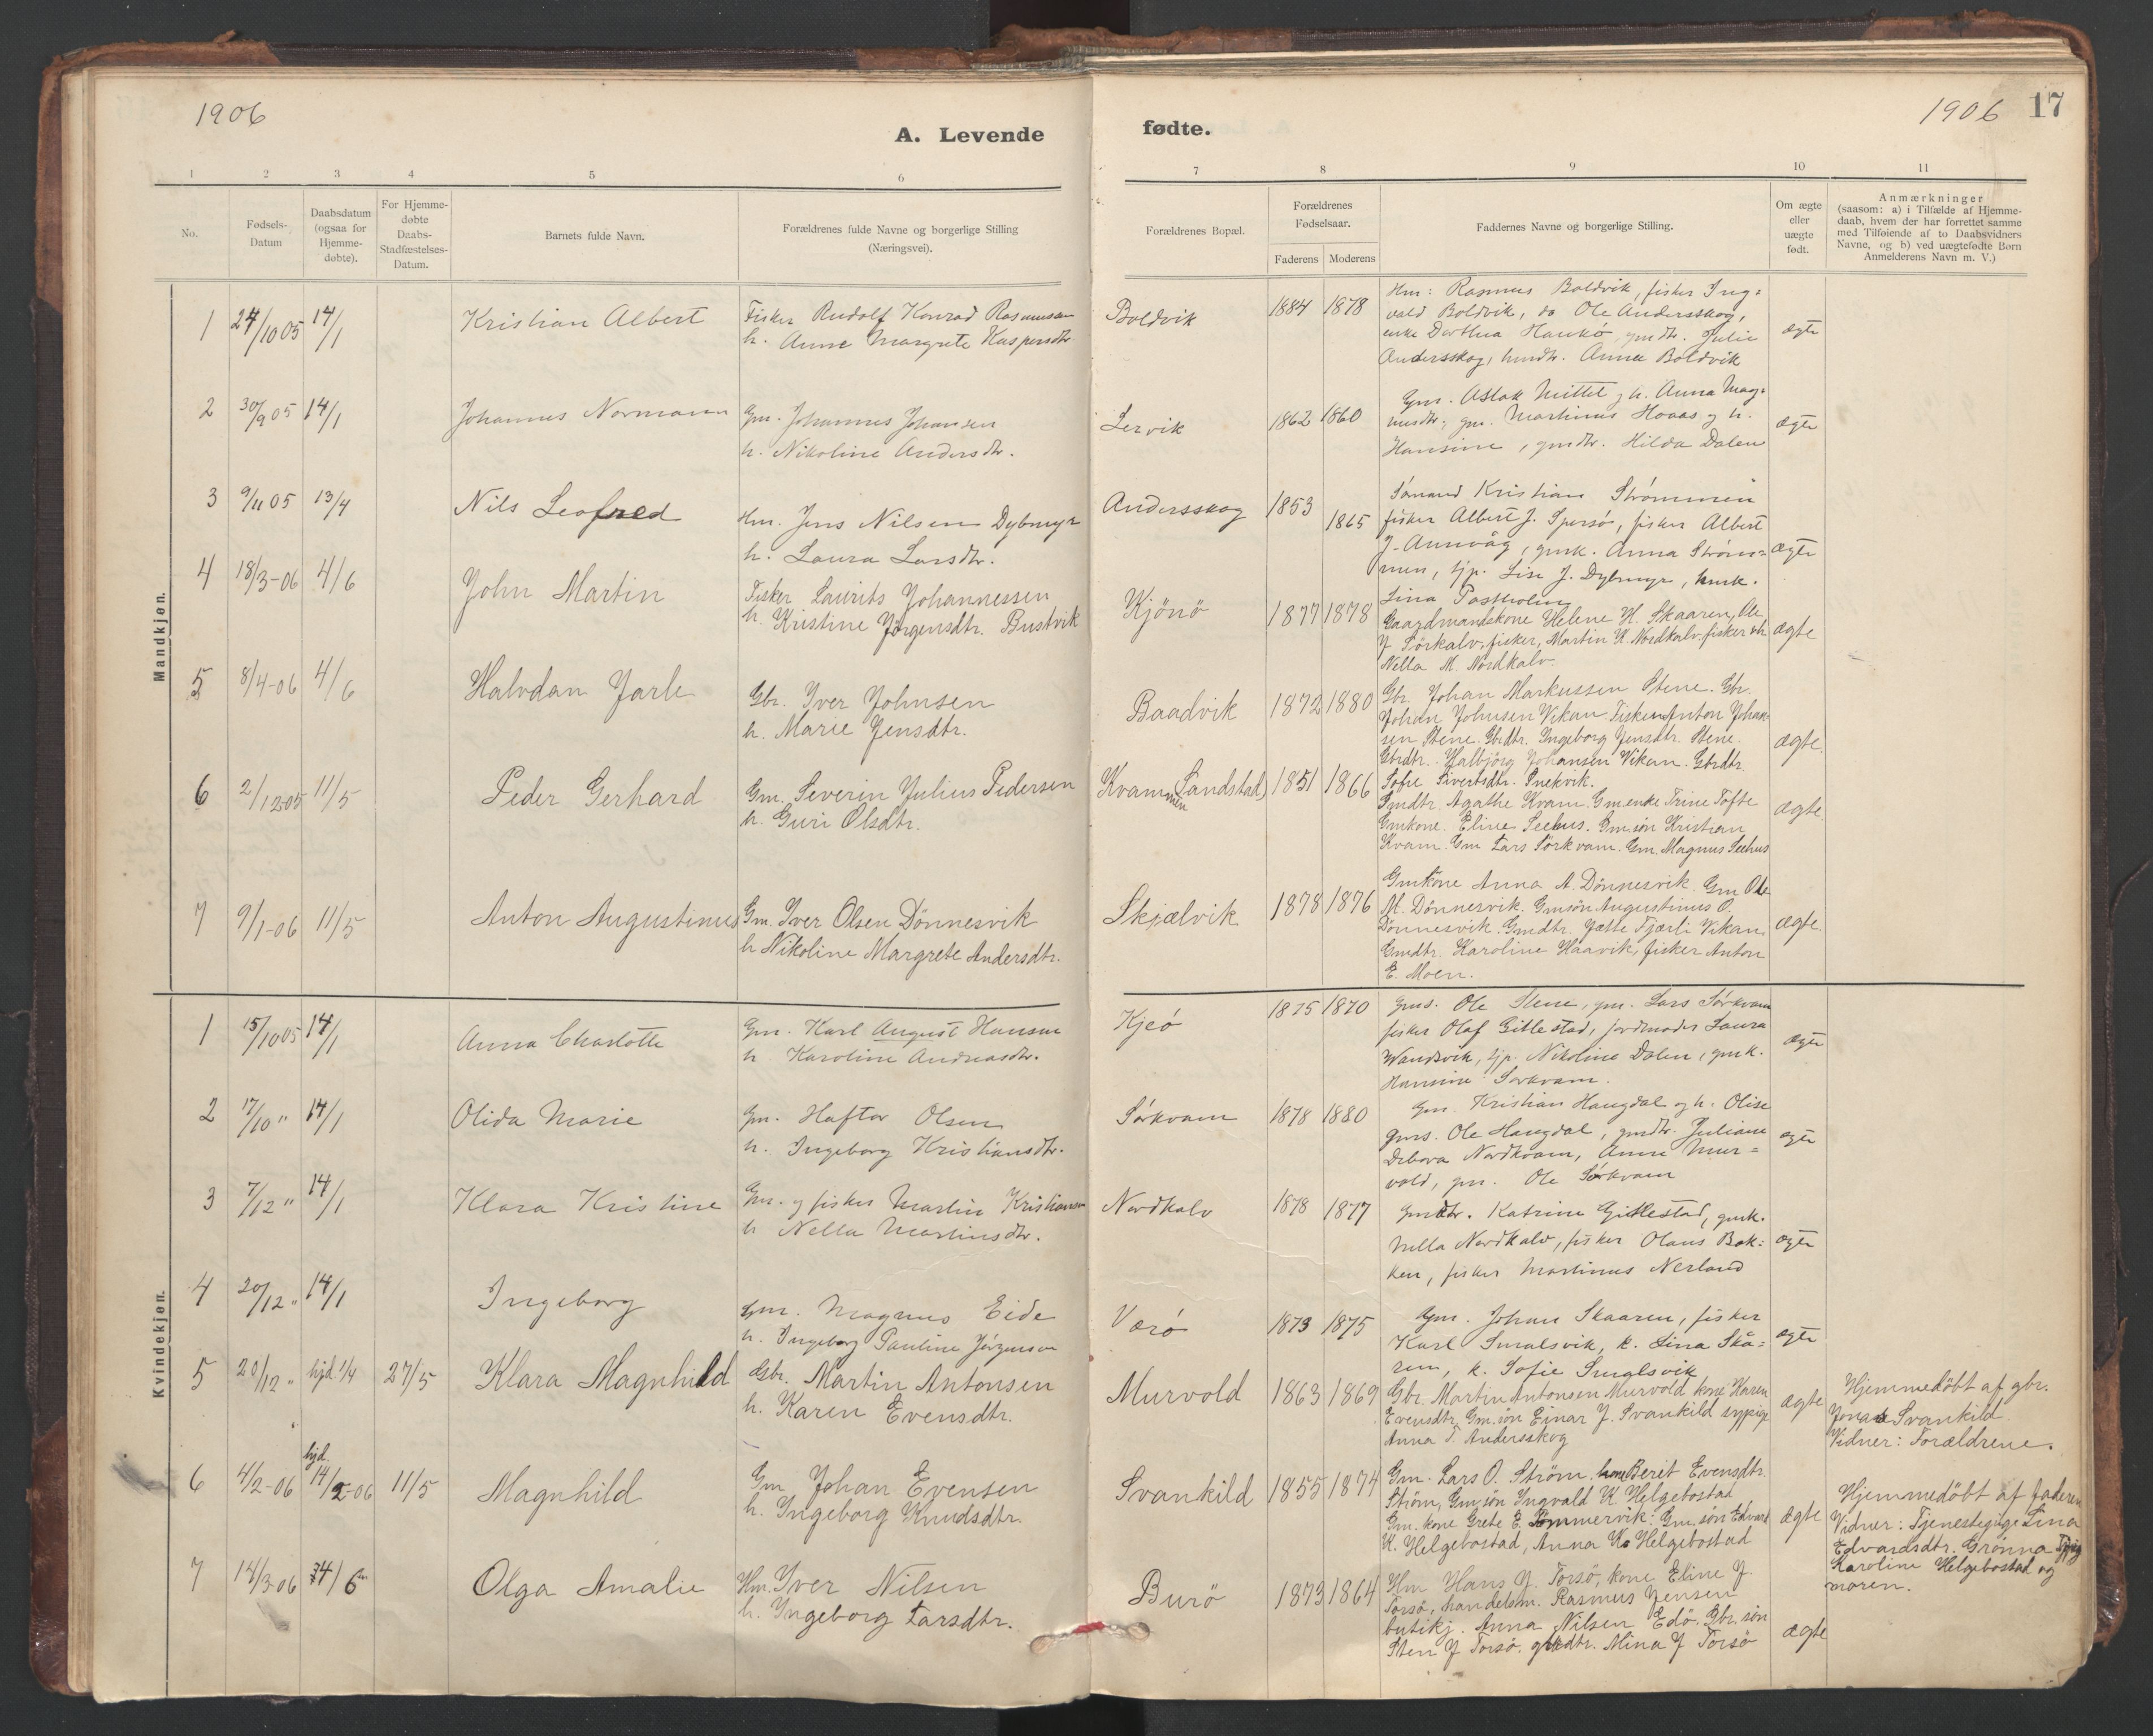 1906
A. Levende
1 2 3 4 5 6
No.
Fødsels-
Datum
Daabsdatum
(ogsaa for
Hjemme-
døbte).
For Hjemme-
døbte
Daabs-
Stadfæstelses-
Datum.
Barnets fulde Navn.
Forældrenes fulde Navne og borgerlige Stilling
(Næringsvei).
Mandkjøn.
1 24/10 05 14/1 Kristian Albert
Fisker Rudolf Konrad Rasmussen
h. Anne Margrete Kaspersdtr
2 30/9 05 14/1 Johannes Normann
Gm. Johannes Johansen
h. Nikoline Andersdtr.
3 9/11 05 13/4 Nils Leofred
Hm. Jens Nilsen Dybmyr
h. Laura Larsdtr.
4 18/3-06 4/6 John Martin
Fisker Laurits Johannessen
h. Kristine Jørgensdtr. Bustvik
5 8/4-06 4/6 Halvdan Jarle
Gbr. Iver Johnsen
h. Marie Jensdtr.
6 2/12 05 11/5 Peder Gerhard
Gm. Severin Julius Pedersen
h. Guri Olsdtr.
7 9/1-06 11/5 Anton Augustinus
Gm. Iver Olsen Dönnesvik
h Nikoline Margrete Andersdtr.
Kvindekjøn.
1 15/10 05 14/1 Anna Charlotte
Gm. Karl August Hansen
h. Karoline Andreasdtr.
2 17/10 " 14/1 Olida Marie
Gm. Haftor Olsen
h. Ingeborg Kristiansdtr.
3 7/12 " 14/1 Klara Kristine
Gm. og fisker Martin Kristiansen
h Nella Martinsdtr.
4 20/12 " 14/1 Ingeborg
Gm. Magnus Eide
h. Ingeborg Pauline Jörgensen
5 20/12 " hjd. 1/4 27/5 Klara Magnhild
Gbr. Martin Antonsen
h. Karen Evensdtr.
6 4/2-06 hjd. 14/2-06 11/5 Magnhild
Gm Johan Evensen
h. Ingeborg Knudsdtr.
7 14/3-06 4/6 Olga Amalie
Hm. Iver Nilsen
h. Ingeborg Larsdtr.
1906 17
fødte.
7 8 9 10 11
Forældrenes Bopæl.
Forældrenes
Fødselsaar.
Faderens Moderens
Faddernes Navne og borgerlige Stilling.
Om ægte
eller
uægte
født.
Anmærkninger
(saasom: a) i Tilfælde af Hjemme-
daab, hvem der har forrettet samme
med Tilføiende af to Daabsvidners
Navne, og b) ved uægtefødte Børn
Anmelderens Navn m. V.)
Boldvik 1884 1878
Hm: Rasmus Boldvik, fisker Ing=
vald Boldvik, do Ole Andersskog,
enke Dorthea Haukö, gmdtr. Julie
Andersskog, hmdtr. Anna Boldvik
ægte
Lervik 1862 1860
Gm. Aslak Mittet og h. Anna Mag=
nusdtr, gm. Martinus Hovas og h.
Hansine, gmdtr. Hilda Dalen
ægte
Andersskog 1853 1865
Sømand Kristian Strömmen
fisker Albert J. Spersö, fisker Albert
J. Aunvåg, gmk. Anna Ström=
men, tjp. Lise J. Dybmyr, hmk.
Lina Postholm
ægte
Kjönö 1877 1878
Gaardmandskone Helene H. Skaaren, Ole
J Sörkalv, fisker, Martin K. Nordkalv, fisker
Nella M. Nordkalv.
ægte
Baadvik 1872 1880
Gbr. Johan Markussen Stene. Gbr.
Johan Johnsen Vikan. Fisker Anton Johan
sen Stene. Gbrdtr. Ingeborg Jensdtr. Stene.
Gbrdtr. Halbjörg Johansen Vikan. Gbrdtr.
Sofie Sivertsdtr. Snekvik.
ægte.
Kvammen (Sandstad) 1851 1866
Gmdtr. Agathe Kvam. Gm.enke Trine Tofte
Gmkone. Eline Seehus. Gm.sön Kristian
Kvam. Gm Lars Sörkvam. Gm. Magnus Seehus
ægte.
Skjælvik 1878 1876
Gmkone Anna A. Dönnesvik. Gm Ole
M. Dönnesvik. Gmsön Augustinus O.
Dönnesvik. Gmdtr. Jætte Fjærli Vikan.
Gmdtr. Karoline Haavik, fisker Anton
E. Moen.
ægte.
Kjeö 1875 1870
Gms. Ole Stene, gm. Lars Sörkvam
fisker Olaf Gittestad, jordmoder Laura
Wandsvik, tjp. Nikoline Dalen, gmk.
Hansine Sørkvam.
ægte
Sörkvam 1878 1880
Gm. Kristian Haugdal og h. Olise
gms. Ole Haugdal, gmdtr. Juliane
Debora Nordkvam, Anne Mur=
vold, gm. Ole Sörkvam
ægte
Nordkalv 1878 1877
Gmdtr. Katrine Gittestad, gmk.
Nella Nordkalv, fisker Olaus Bak=
ken, fisker Martinus Nerland
ægte
Værö 1873 1875
Gm. Johan Skaaren, fisker
Karl Smalsvik, k. Lina Skå=
ren, k. Sofie Smalsvik
ægte
Murvold 1863 1869
Gbr. Martin Antonsen Murvold kone Karen
Evensdtr, Gm.sön Einar J. Svankild sypige
Anna T. Andersskog
ægte
Hjemmedöbt af gbr.
Jonas Svankild.
Vidner: Forældrene.
Svankild 1855 1874
Gm. Lars O. Ström. kone Berit Evensdtr.
Ström, Gm.sön Ingvald K Helgebostad
Gm. kone Grete E. Sommervik. Gm.sön Edvard
K. Helgebostad, Anna K. Helgebostad
ægte
Hjemmedöbt af faderen
Vidner: Tjenestepige Lina
Edvardsdtr. Grönna
Karoline Helgebostad og
moren.
Burö 1873 1864
Hm Hans J. Torsö, kone Eline J.
Torsö, handelsm. Rasmus Jensen
butikj. Anna Nilsen Edö, Gbr. sön
Sten J Torsö, gbrdtr. Mina J Torsö
ægte